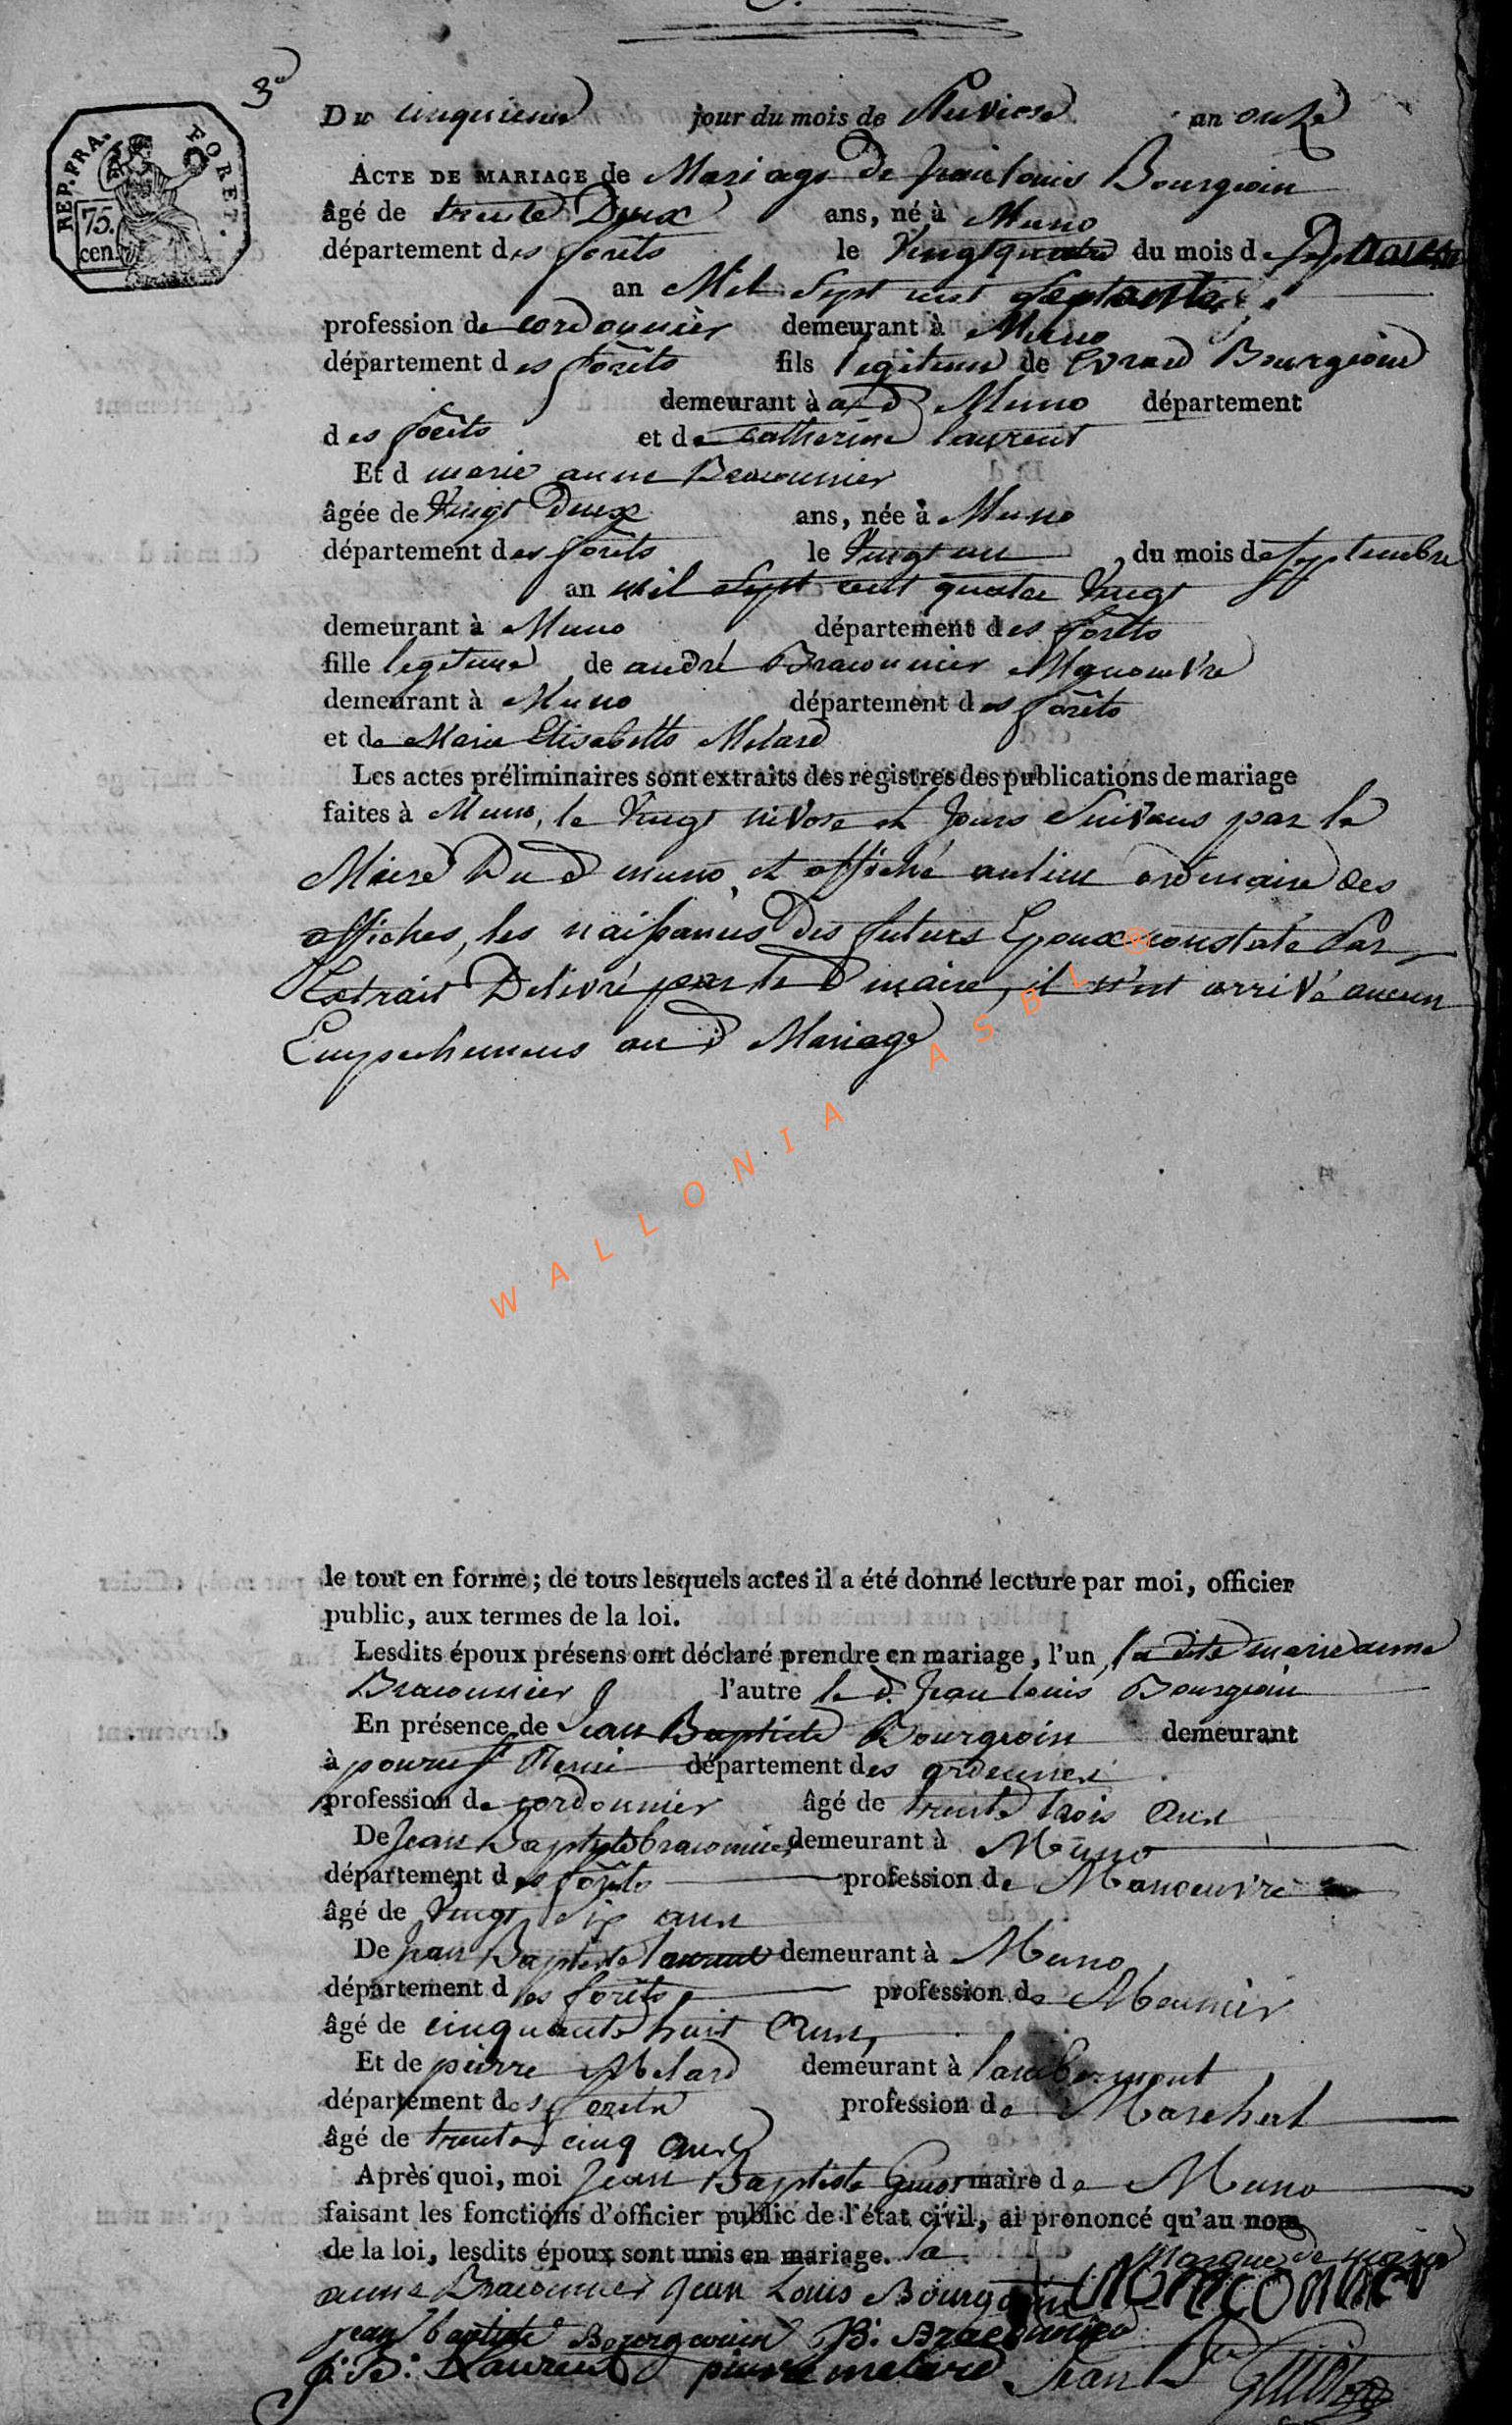 3e
REP. FRA. FORET.
75.
cen.
Du cinquieme jour du mois de Pluviose an onze
ACTE DE MARIAGE de Mariage de Jean louis Bourgeoin
âgé de trente Deux ans, né à Muno
département des forêts le Vingt quatre du mois de
an Mil Sept cent Septante
profession de cordonnier demeurant à Muno
département des forêts fils legitime de Evrard Bourgeoin
demeurant à aud Muno département
des forêts et de Catherine laurent
Et d marie anne Braconnier
âgée de Vingt Deux ans, née à Muno
département des forêts le Vingt un du mois de Septembre
an mil Sept cent quatre Vingt
demeurant à Muno département des forêts
fille legitime de andré Braconnier Manoeuvre
demeurant à Muno département des forêts
et de Marie Elisabette Melard
Les actes préliminaires sont extraits des registres des publications de mariage
faites à Muno, le Vingt nivose et Jours Suivans par le
Maire Du d muno et affiché au lieu ordinaire des
affiches, les naissances Des futurs Epoux constaté Par
Extrait Delivré par le d maire, il n'est arrivé aucun
Empechemens au d Mariage
WALLONIA ASBL ®
le tout en forme ; de tous lesquels actes il a été donné lecture par moi, officier
public, aux termes de la loi.
Lesdits époux présens ont déclaré prendre en mariage, l'un la dite marie anne
Braconnier l'autre le d. Jean louis Bourgeoin
En présence de Jean Baptiste Bourgeoin demeurant
à département des ardennes
profession de cordonnier âgé de trente trois ans
De Jean Baptiste braconnier demeurant à Muno
département des forêts profession de Manoeuvre
âgé de Vingt Six ans
De Jean Baptiste laurent demeurant à Muno
département des forêts profession de Meunier
âgé de cinquante huit ans
Et de pierre Melard demeurant à lambermont
département des forêts profession de Marchal
âgé de trente cinq ans
Après quoi, moi Jean Baptiste Guiot maire de Muno
faisant les fonctions d'officier public de l'état civil, ai prononcé qu'au nom
de la loi, lesdits époux sont unis en mariage. la Marque de marie
anne Braconnier Jean Louis Bourgoin
jean baptiste Bourgeouin J. B. Braconnier
J. B. Laurent pierre melard Jean Bte Guiot